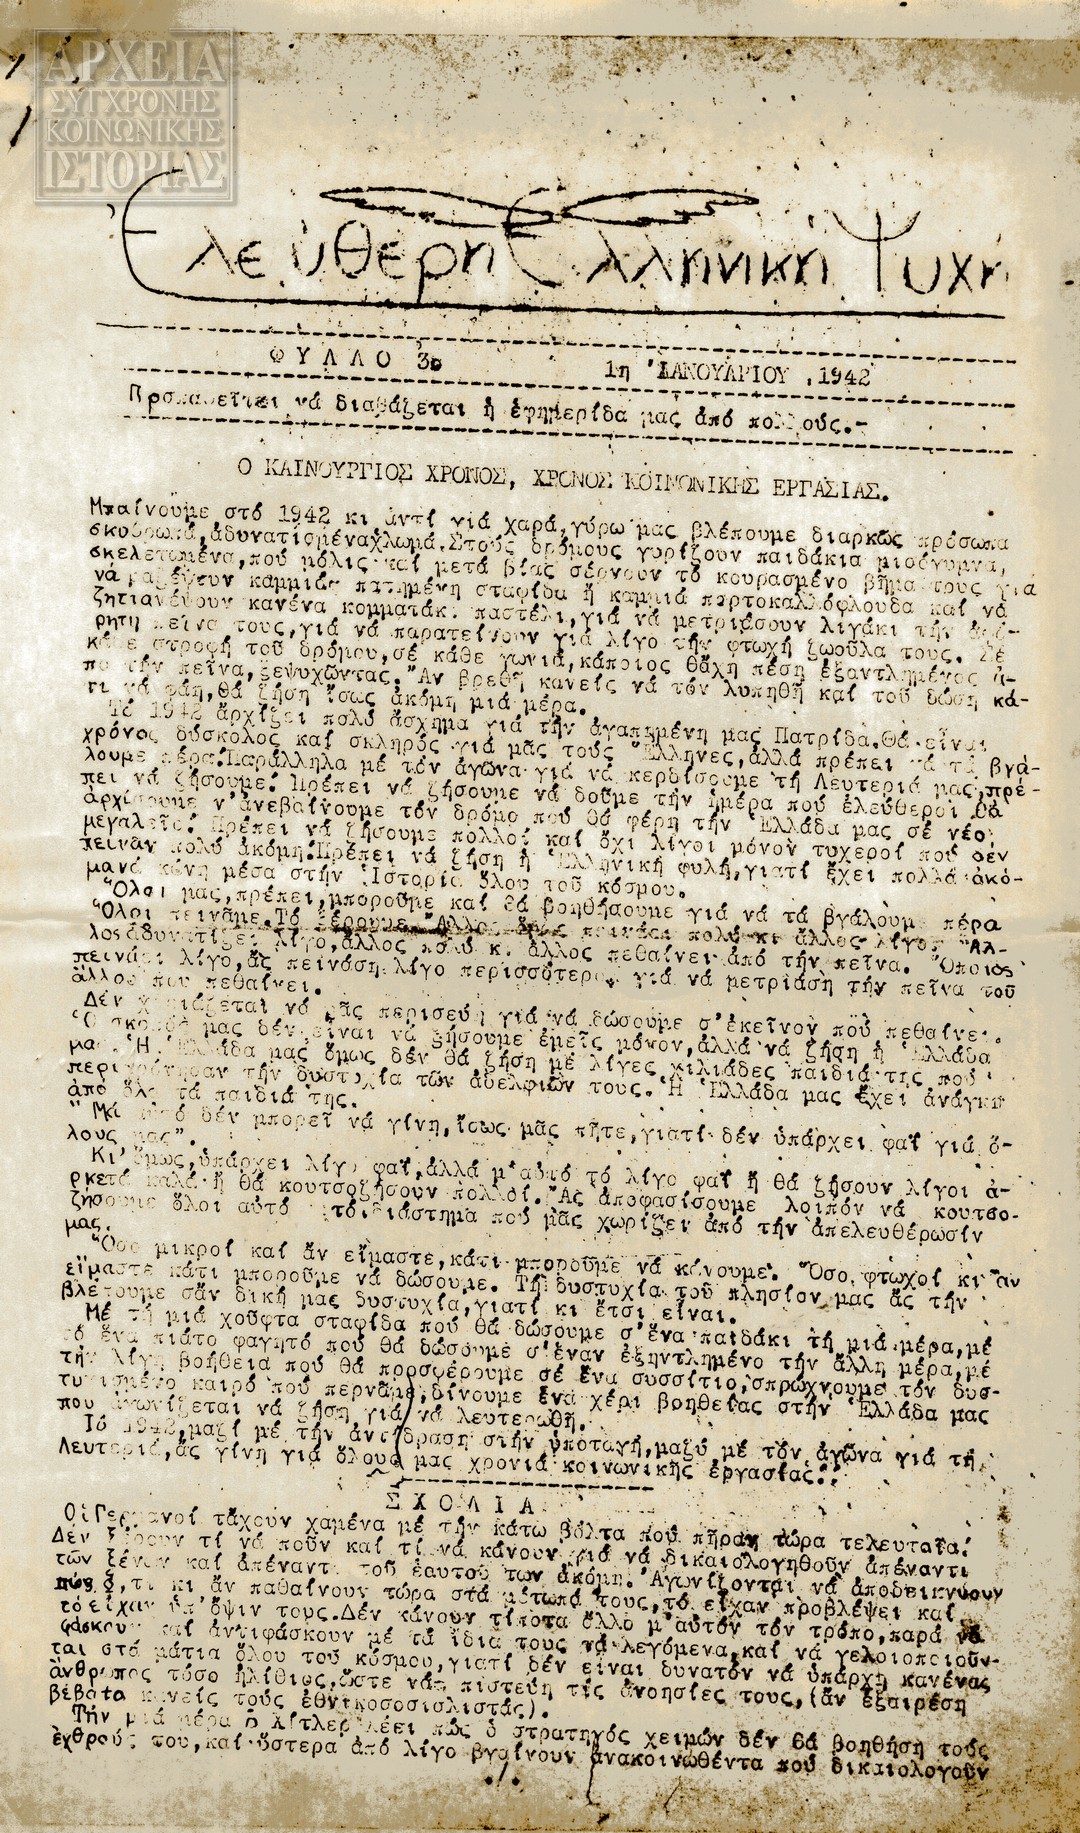 ΑΡΧΕΙΑ
ΣΥΓΧΡΟΝΗΣ
ΚΟΙΝΩΝΙΚΗΣ
ΙΣΤΟΡΙΑΣ
Ἐλεύθερη Ἑλληνική Ψυχή
ΦΥΛΛΟ 3ο 1η ἸΑΝΟΥΑΡΙΟΥ ,1942
Προσπαθεῖτει νά διαβάζεται ἡ ἐφημερίδα μας ἀπό πολλούς.-
Ο ΚΑΙΝΟΥΡΓΙΟΣ ΧΡΟΝΟΣ, ΧΡΟΝΟΣ ΚΟΙΝΩΝΙΚΗΣ ΕΡΓΑΣΙΑΣ.
Μπαίνουμε στό 1942 κι ἀντί γιά χαρά,γύρω μας βλέπουμε διαρκῶς πρόσωπα
σκυθρωπά,ἀδυνατισμέναχλωμά.Στούς δρόμους γυρίζουν παιδάκια μισόγυμνα,
σκελετωμένα,πού μόλις καί μετά βίας σέρνουν τό κουρασμένο βῆμα τους γιά
νά μαζέψουν καμμιάν πατημένη σταφίδα ἤ καμμιά πορτοκαλλόφλουδα καί νά
ζητιανέψουν κανένα κομματάκι παστέλι,γιά νά μετριάσουν λιγάκι τήν ἀφό-
ρητη πεῖνα τους,γιά νά παρατείνουν γιά λίγο τήν φτωχή ζωοῦλα τους. Σέ
κάθε στροφή τοῦ δρόμου,σέ κάθε γωνιά,κάποιος θἄχη πέση ἐξαντλημένος ἀ-
πό τήν πεῖνα,ξεψυχῶντας. Ἄν βρεθῆ κανείς νά τόν λυπηθῆ καί τοῦ δώση κά-
τι νά φάη,θά ζήση ἴσως ἀκόμη μιά μέρα.
Τό 1942 ἄρχίζει πολύ ἄσχημα γιά τήν ἀγαπημένη μας Πατρίδα.Θά εἶναι
χρόνος δύσκολος καί σκληρός γιά μᾶς τούς Ἕλληνες,ἀλλά πρέπει νά τά βγά-
λουμε πέρα.Παράλληλα μέ τόν ἀγῶνα γιά νά κερδίσουμε τή Λευτεριά μας,πρέ-
πει νά ζήσουμε. Πρέπει νά ζήσουμε νά δοῦμε τήν ἡμέρα πού ἐλεύθεροι θά
ἀρχίσουμε ν'ἀνεβαίνουμε τόν δρόμο πού θά φέρη τήν Ἑλλάδα μας σέ νέο
μεγαλεῖο. Πρέπει νά ζήσουμε πολλοί καί ὄχι λίγοι μόνον τυχεροί πού δέν
πεινᾶν πολύ ἀκόμη.Πρέπει νά ζήση ἡ Ἑλληνική φυλή,γιατί ἔχει πολλά ἀκό-
μανά κάνη μέσα στήν Ἱστορία ὅλου τοῦ κόσμου.
Ὅλοι μας,πρέπει,μποροῦμε καί θά βοηθήσουμε γιά νά τά βγάλουμε πέρα
Ὅλοι πεινᾶμε.Τό ξέρουμε. Ἄλλος ὅμως πεινάει πολύ κι ἄλλος λίγο. Ἄλ-
λοςἀδυνατίζει λίγο,ἄλλος πολύ κι ἄλλος πεθαίνει ἀπό τήν πεῖνα. Ὅποιος
πεινάει λίγο,ἄς πεινάση λίγο περισσότερο γιά νά μετριάση τήν πεῖνα τοῦ
ἄλλου πού πεθαίνει.
Δέν χρειάζεται νά μᾶς περισεύη γιά νά δώσουμε σ'ἐκεῖνον πού πεθαίνει.
Ὁ σκοπός μας δέν εἶναι νά ζήσουμε ἐμεῖς μόνον,ἀλλά νά ζήση ἡ Ἑλλάδα
μας. Ἡ Ἑλλάδα μας ὅμως δέν θά ζήση μέ λίγες χιλιάδες παιδιά της πού
περιφρόνησαν τήν δυστυχία τῶν ἀδελφιῶν τους. Ἡ Ἑλλάδα μας ἔχει ἀνάγκη
ἀπό ὅλα τά παιδιά της.
"Μά αὐτό δέν μπορεῖ νά γίνη,ἴσως μᾶς πῆτε,γιατί δέν ὑπάρχει φαΐ γιά ὅ-
λους μας".
Κι' ὅμως,ὑπάρχει λίγο φαΐ,ἀλλά μ'αὐτό τό λίγο φαΐ ἤ θά ζήσουν λίγοι ἀ-
ρκετά καλά ἤ θά κουτσοζήσουν πολλοί. Ἄς ἀποφασίσουμε λοιπόν νά κουτσο-
ζήσουμε ὅλοι αὐτό τόδιάστημα πού μᾶς χωρίζει ἀπό τήν ἀπελευθέρωσίν
μας.
Ὅσο μικροί καί ἄν εἴμαστε,κάτι μποροῦμε νά κάνουμε. Ὅσο φτωχοί κι ἄν
εἴμαστε κάτι μποροῦμε νά δώσουμε. Τή δυστυχία τοῦ πλησίον μας ἄς τήν
βλέπουμε σάν δική μας δυστυχία,γιατί κι ἔτσι εἶναι.
Μέ τή μιά χοῦφτα σταφίδα πού θά δώσουμε σ'ἕνα παιδάκι τή μιά μέρα,μέ
τό ἕνα πιάτο φαγητό πού θά δώσουμε σ'ἕναν ἐξηντλημένο τήν ἄλλη μέρα,μέ
τήν λίγη βοήθεια πού θά προσφέρουμε σέ ἕνα συσσίτιο,σπρώχνουμε τόν δυσ-
τυχισμένο καιρό πού περνᾶμε,δίνουμε ἕνα χέρι βοηθείας στήν Ἑλλάδα μας
πού ἀγωνίζεται νά ζήση γιά νά λευτερωθῆ.
Τό 1942,μαζί μέ τήν ἀντίδραση στήν ὑποταγή,μαζύ μέ τόν ἀγῶνα γιά τή
Λευτεριά,ἄς γίνη γιά ὅλους μας χρονιά κοινωνικῆς ἐργασίας.
ΣΧΟΛΙΑ
Οἱ Γερμανοί τἄχουν χαμένα μέ τήν κάτω βόλτα πού πῆραν τώρα τελευταῖα.
Δέν ξέρουν τί νά ποῦν καί τί νά κάνουν γιά νά δικαιολογηθοῦν ἀπέναντι
τῶν ξένων καί ἀπέναντι τοῦ ἑαυτοῦ των ἀκόμη. Ἀγωνίζονται νά ἀποδεικνύουν
πώς ὅ,τι κι ἄν παθαίνουν τώρα στά μέτωπά τους,τό εἶχαν προβλέψει καί
τό εἶχαν ὑπ'ὄψιν τους.Δέν κάνουν τίποτα ἄλλο μ'αὐτόν τόν τρόπο,παρά νά
φάσκουν καί ἀντιφάσκουν μέ τά ἴδια τους τά λεγόμενα,καί νά γελοιοποιοῦν-
ται στά μάτια ὅλου τοῦ κόσμου,γιατί δέν εἶναι δυνατόν νά ὑπάρχη κανένας
ἄνθρωπος τόσο ἠλίθιος,ὥστε νά πιστεύη τίς ἀνοησίες τους,(ἄν ἐξαιρέση
βέβαια κανείς τούς ἐθνικοσοσιαλιστάς).
Τήν μιά μέρα ὁ Χίτλερ λέει πώς ὁ στρατηγός χειμών δέν θά βοηθήση τούς
ἐχθρούς του,καί ὕστερα ἀπό λίγο βγαίνουν ἀνακοινωθέντα πού δικαιολογοῦν
./.